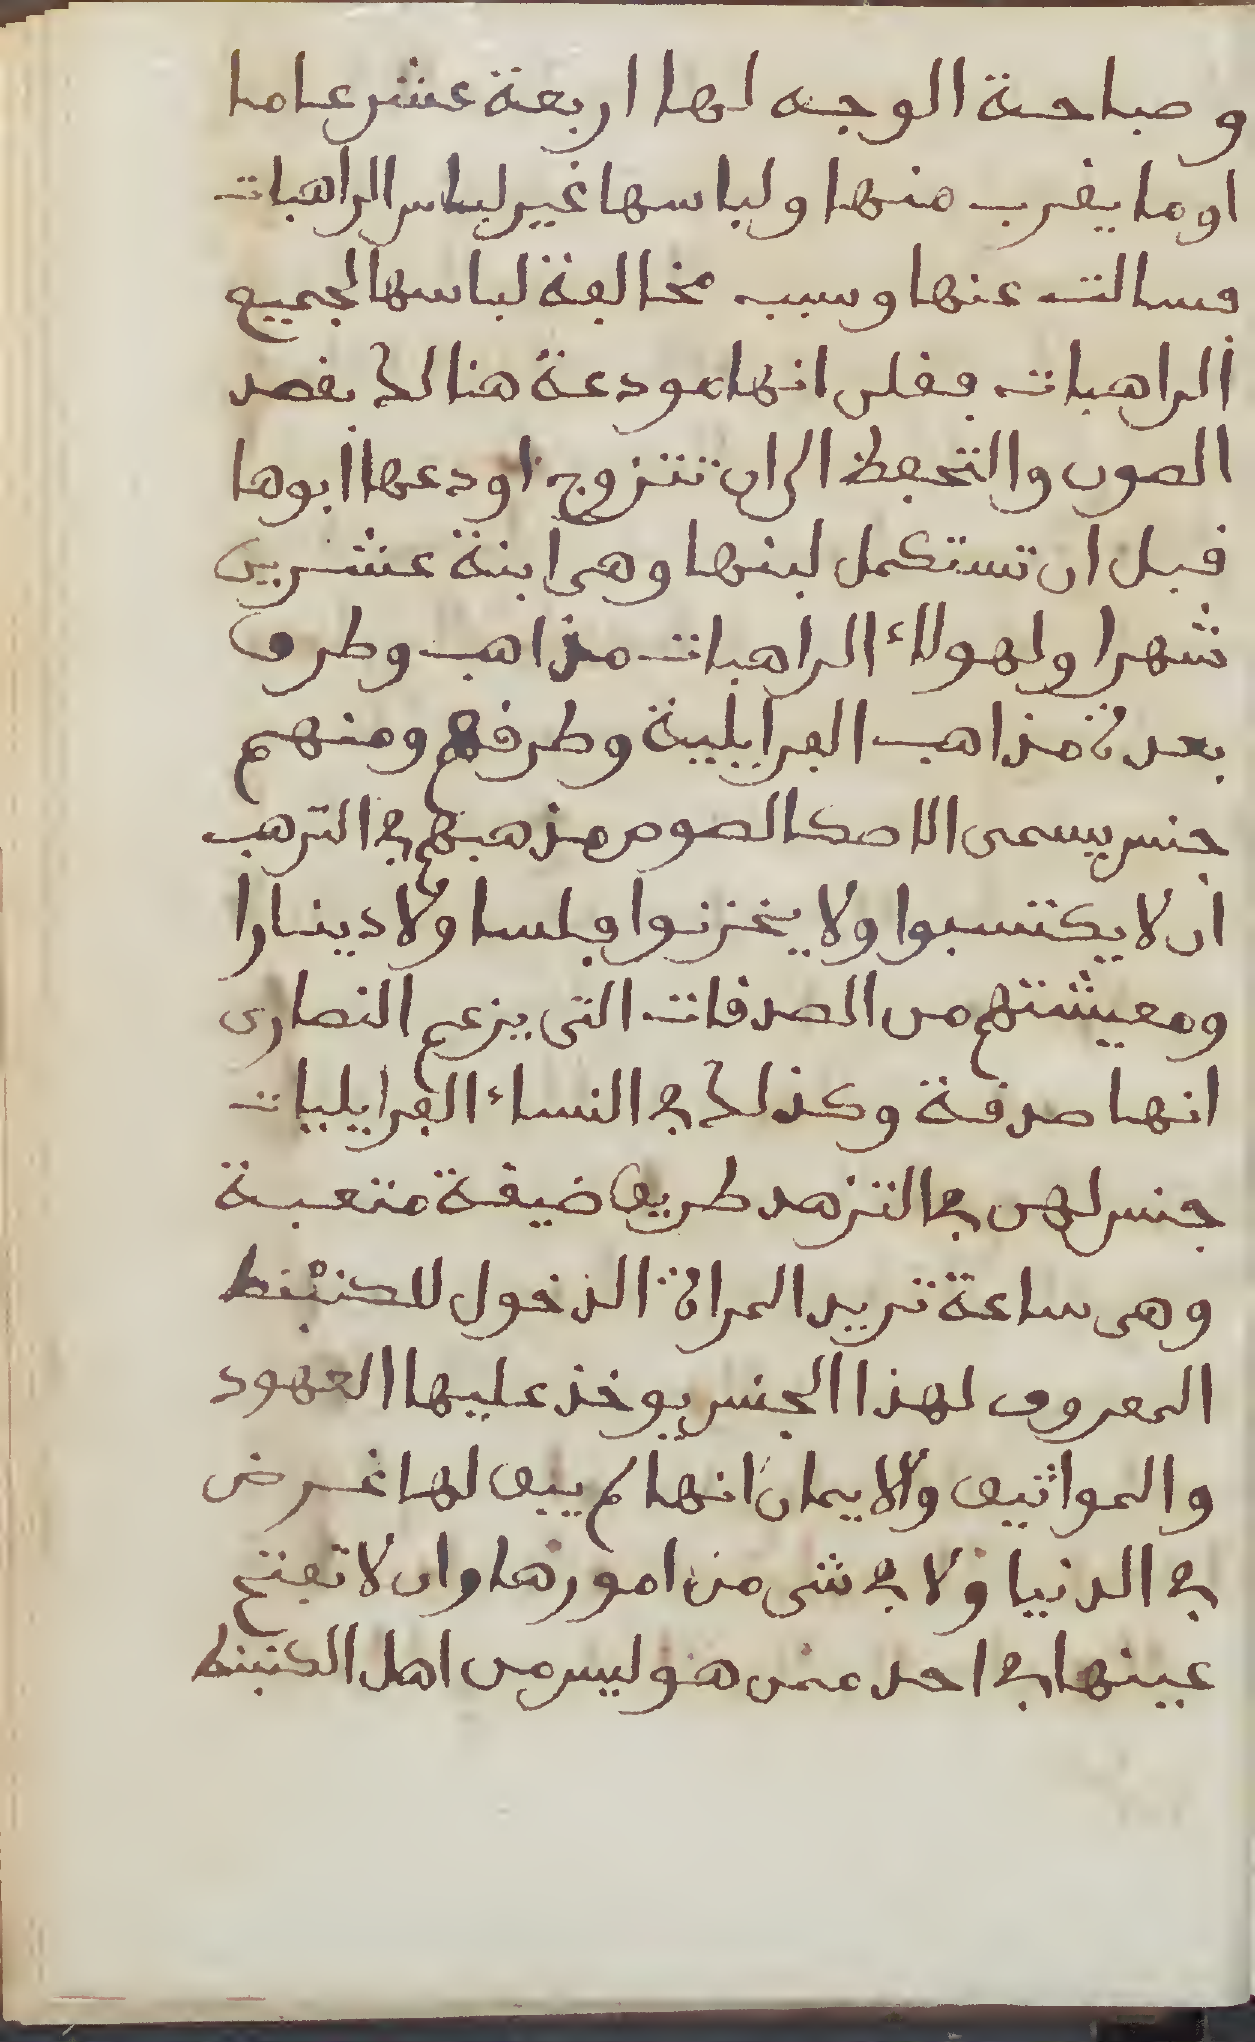 وصباحة الوجه لها اربعة عشر عاما
او ما يقرب منها ولباسها غير لباس الراهبات
فسالت عنها وسبب مخالفة لباسها لجميع
الراهبات فقلن انها مودعة هنالك بقصد
الصون والتحفظ الى ان تتزوج اودعها ابوها
قبل ان تستكمل لبنها وهي ابنة عشرين
شهرا ولهولاء الراهبات مذاهب وطرق
بعدة مذاهب الفرايلية وطرقهم ومنهم
جنس يسمى الاصكالصوص مذهبهم في الترهب
ان لا يكتسبوا ولا يخزنوا فلسا ولا دينارا
ومعيشتهم من الصدقات التي يزعم النصارى
انها صدقة وكذلك في النساء الفرايليات
جنس لهن في التزهد طريق ضيقة متعبة
وهي ساعة تريد المراة الدخول للكنبنط
المعروف لهذا الجنس يوخذ عليها العهود
والمواثيق والايمان انها لم يبق لها غرض
في الدنيا ولا في شي من امورها وان لا تفتح
عينها في احد ممن هو ليس من اهل الكنبنط